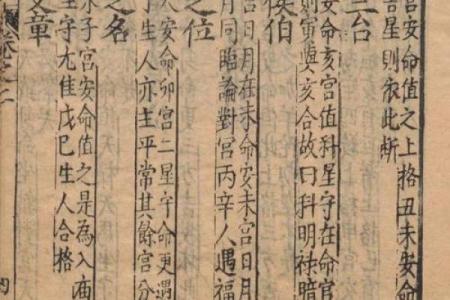 宮安命值之上格丑未安命
吉星則依此斷
三台
安命亥宮值科星守在命官
則寅與亥合故曰科明祿暗
侯伯
宮日月在未命安未宮日月
月同臨論對宮丙辛人遇福
之位
人安命卯宮二星守命更遇
生人亦主平常其餘宮分
之名
子宮安命值之是為入廟
守尤佳戊巳生人合格
文章